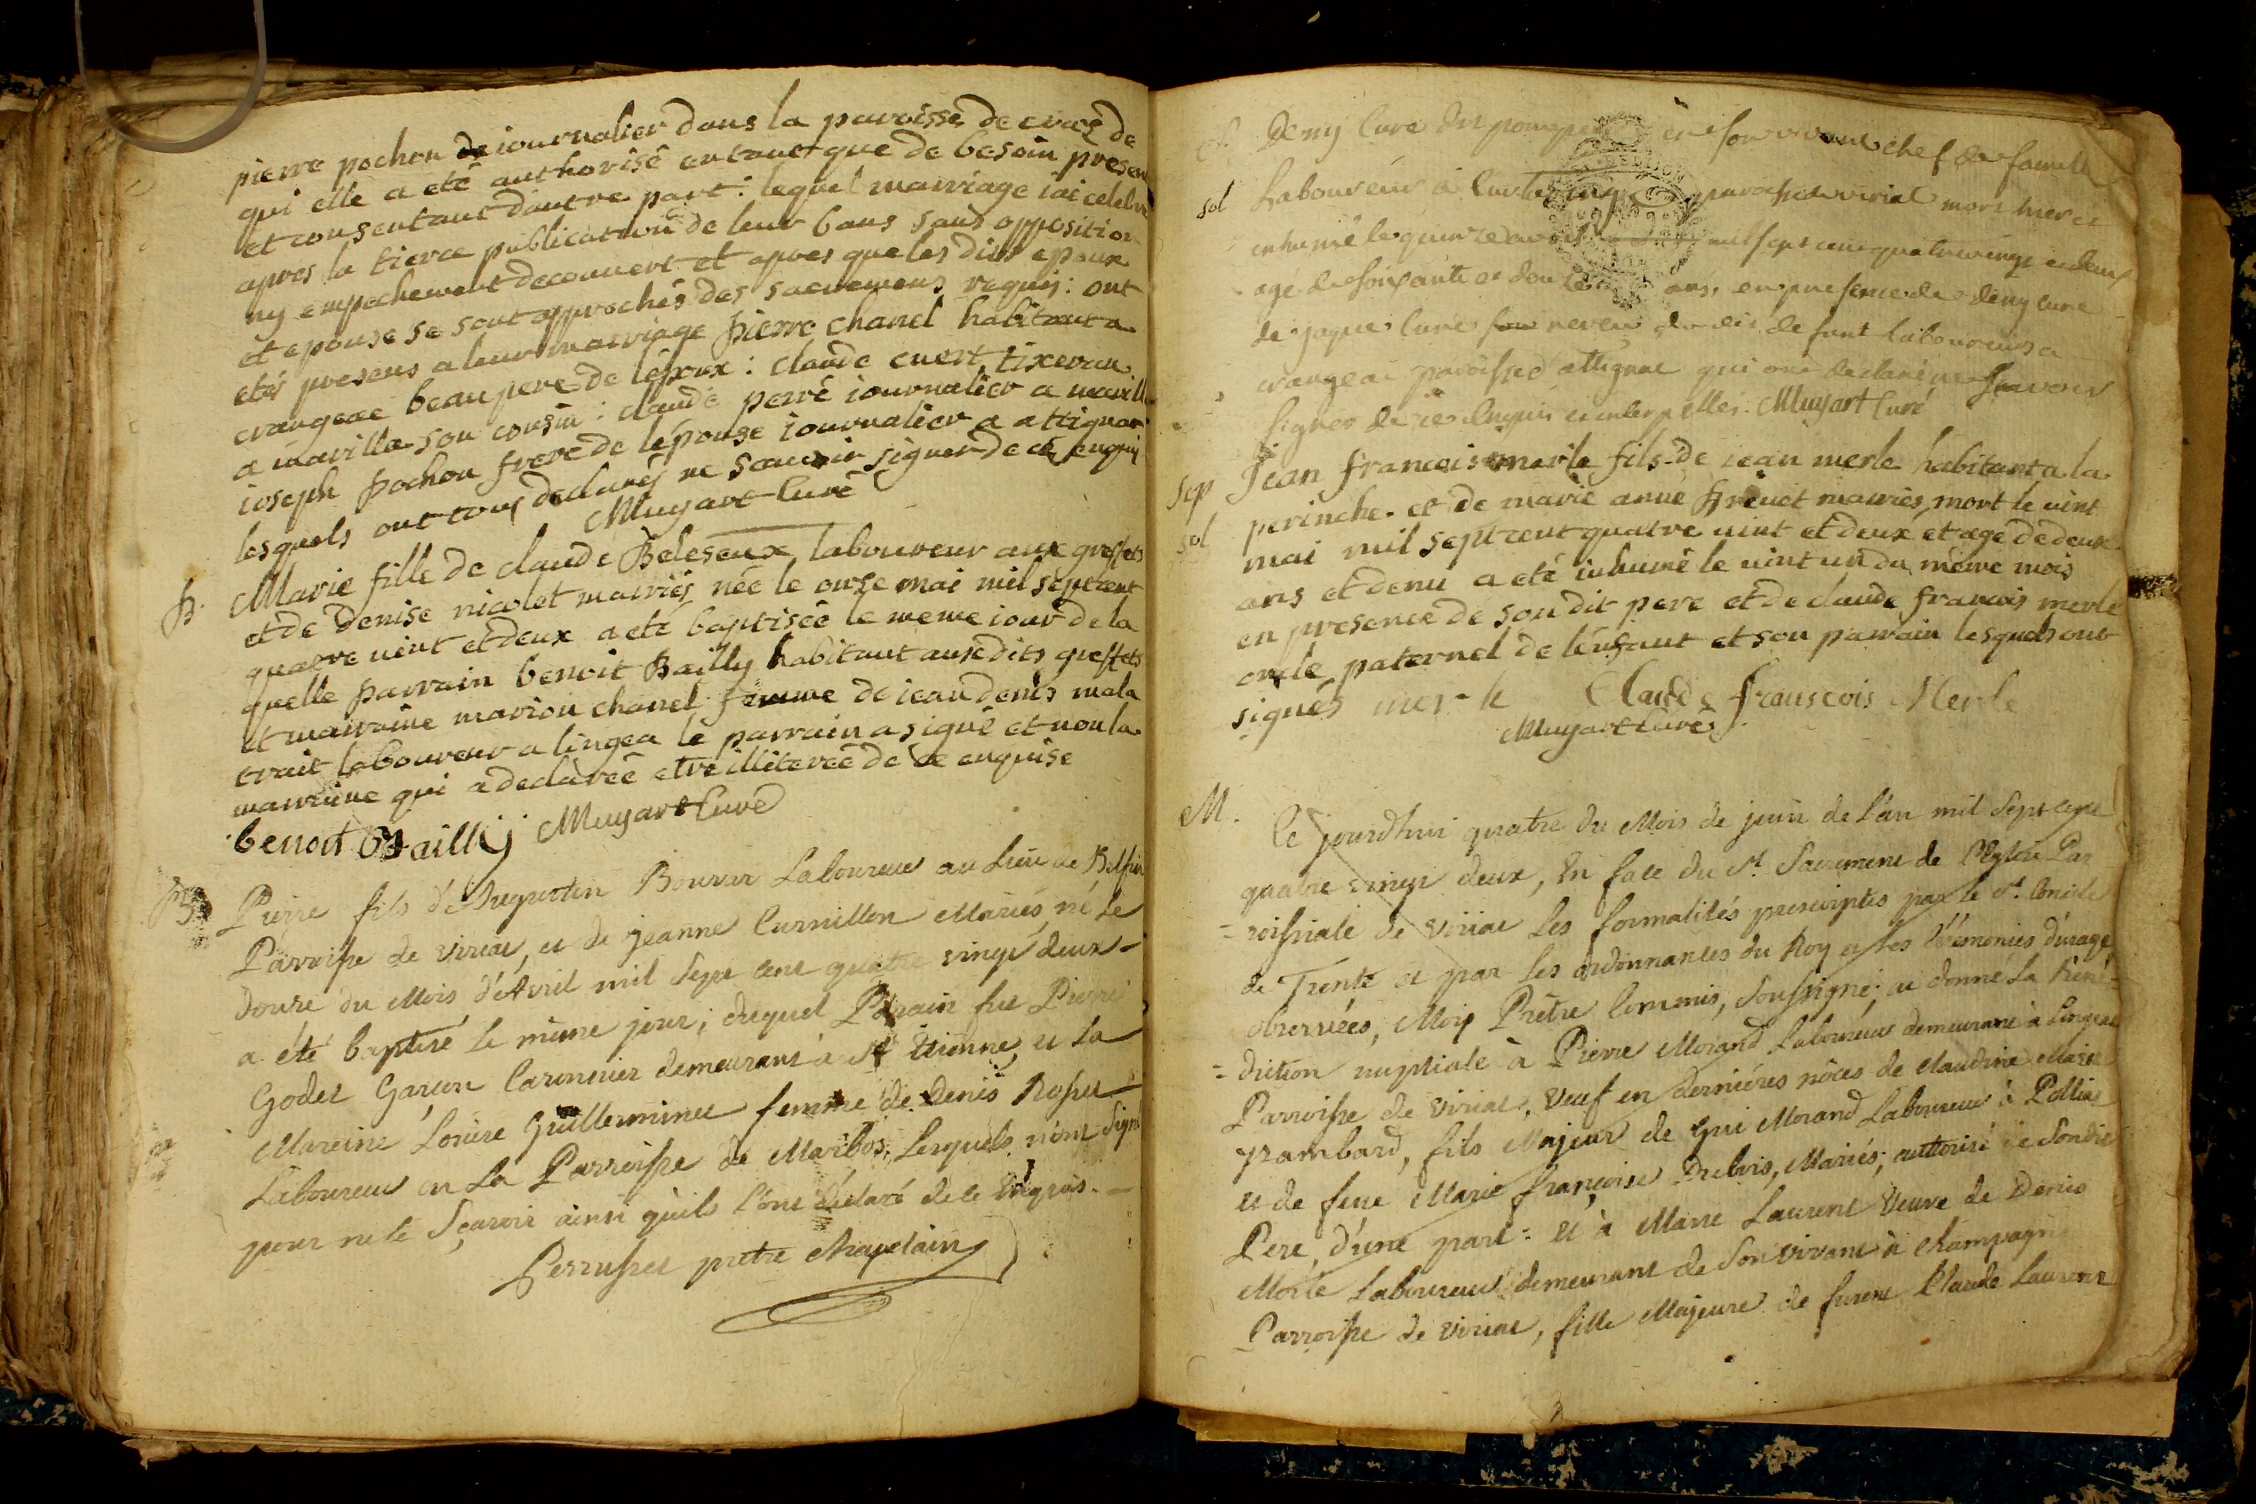 pierre pochon journalier dans la paroisse de cras de
qui elle a eté authorisé en tant que de besoin presen
et consentant dautre part : lequel marriage iai celebré
apres la tierce publication de leur bans sans opposition
ny empechement decouvert et apres que les dits epoux
et epouse se sont approchés des sacremens requis : ont
etés presens a leur marriage pierre chanel habitant a
crangeae beau pere de lepoux : claude cuert tixeran
a marilla son cousin : claude perré iournalier a marill
ioseph pochon frere de lepouse iournalier a attignar
lesquels ont tous declarés ne scauoir signer de ce enquis
Muyart Curé
B. Marie fille de claude Beleseaux laboureur aux greffets
et de denise nicolet mariés née le onze mai mil septcent
quatre uint et deux a eté baptiséé le meme iour de la
quelle parrain benoit Bailly habitant ausedits greffets
et marraine marion chanel femme de iean denis mala
trait laboureur a lingea le parrain a signé et non la
marraine qui a declaréé etre illiteréé de ce enquise
benoit Bailly Muyart Curé
B Pierre fils d'Augustin Bouvar Laboureur au Lieu de
Parroisse de viriat, et de jeanne Curnillon Mariés, né le
douze du Mois d'Avril mil Sept cent quatre vingt deux
a été baptisé le même jour; duquel Parain fut Pierre
Godet Garçon demeurant à St Etienne, et la
Mareine Louise Guillerminet femme de Denis Rosset
Laboureur en la Parroisse de Marboz, Lesquels n'ont Signé
pour ne le Sçavoir ainsi qu'ils l'ont déclaré de ce Enquis.
Perrusset prêtre Chapelain
S. Deny Cure dit en son vivant chef de famille
sol Laboureur à paroisse de viriat mort hier et
inhumé le quinze avril mil sept cent quatre vingt et deux
age de soixante et douze ans, en presence de deny Cure
de jaque Cure neveu du dit defunt laboureurs a
crangeac paroisse d attignat qui ont declaré ne scavoir
signer de ce Enquis et interpellés. Muyart Curé
Sep Jean francois merle fils de iean merle habitant a la
sol perinche et de marie anne mariés, mort le uint
mai mil septcent quatre uint et deux et age de deux
ans et demi a eté inhumé le uint un du même mois
en presence de son dit pere et de claude francois merle
oncle paternel de lenfant et son parrain lesquels ont
signés mer-le Claude franscois Merle
Muyart Curé
M. Ce jourdhui quatre du Mois de juin de L'an mil Sept cent
quatre vingt deux, En face du St. Sacrement de L'Eglise Par
=roissiale de viriat Les formalités prescriptes par le St. Concile
de Trente et par Les ordonnances du Roy et Les Cérémonies d'usage
observées, Moy Prêtre Commis, Soussigné; ai donné La Béné=
=diction nuptiale à Pierre Morand Laboureur demeurant à Lingeat
Parroisse de viriat, veuf en dernières nôces de Claudine Marie
pambard, fils Majeur de Gui Morand Laboureur à Polliat
et de feue Marie françoise Dubois, Mariés; authorisé de Sondit
Pere, d'une part : et à Marie Laurent Veuve de Denis
Laboureur demeurant de Son vivant à Champagne
Parroisse de viriat, fille Majeure de furent Claude Laurent